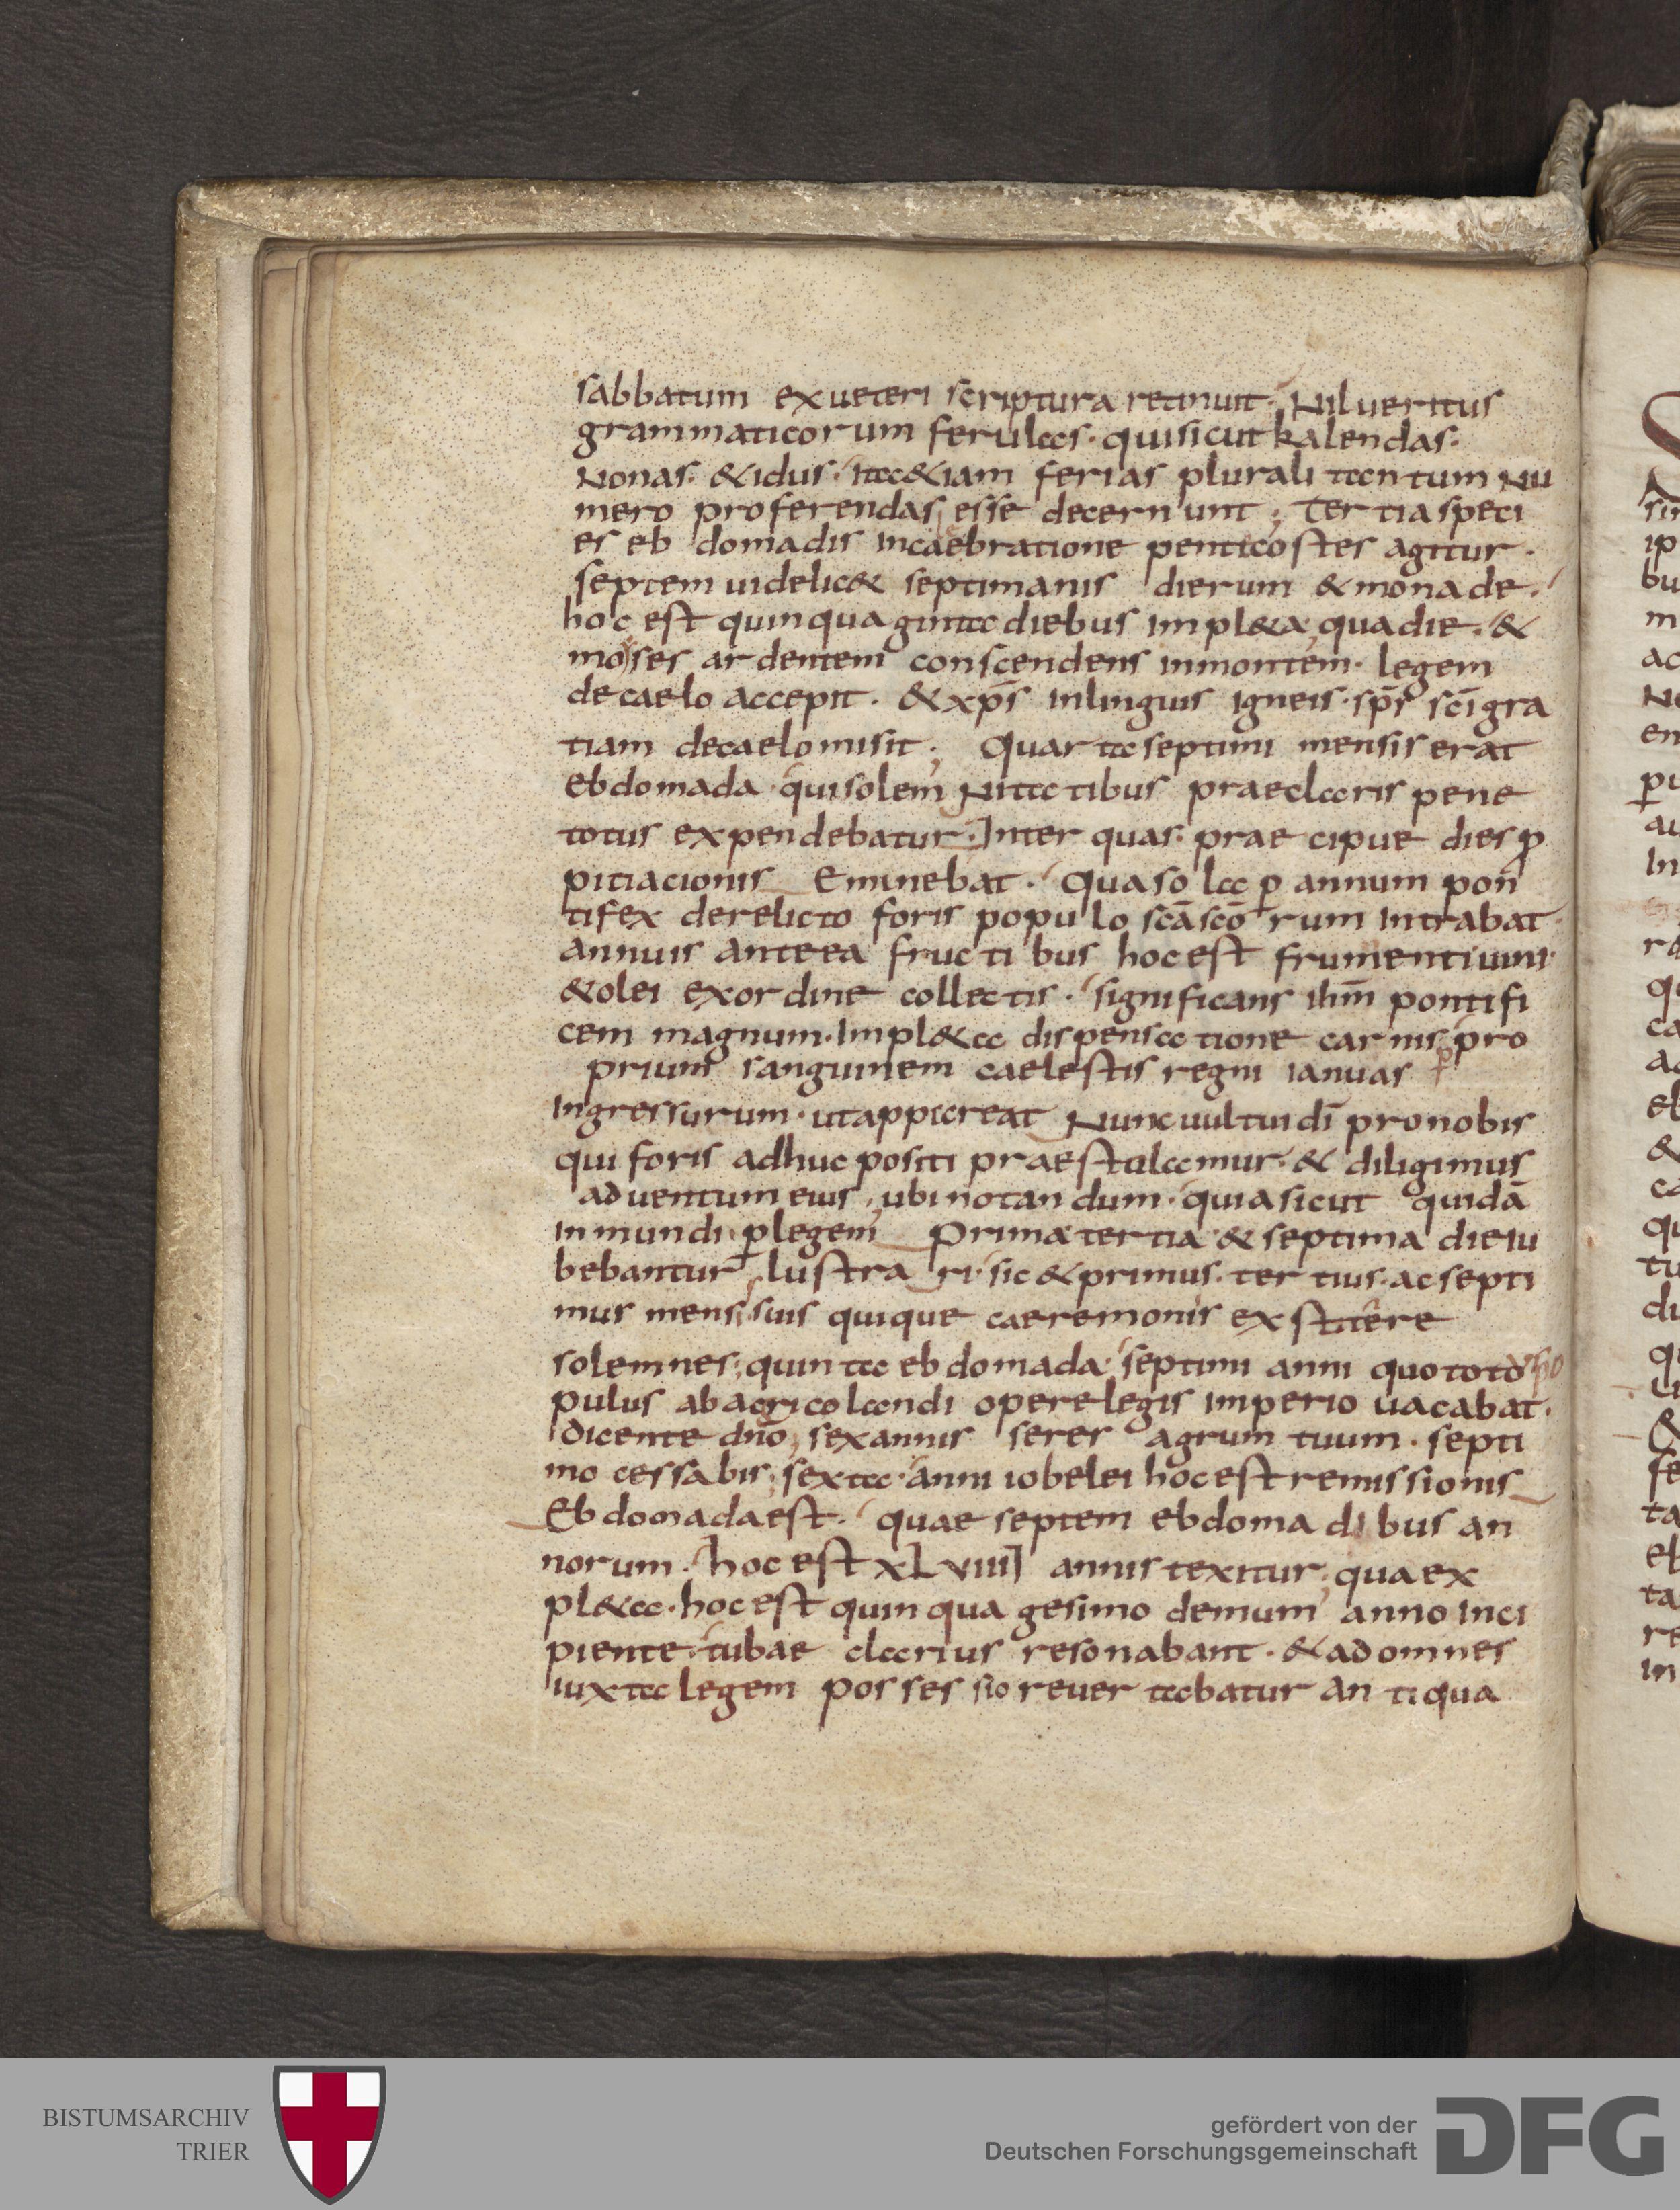 sabbatum exueteri scriptura retinuit. Nil ueritus
grammaticorum ferulas. quisicut kalendas.
Nonas. &idus. ita&iam ferias plurali tantum nu
mero proferendas esse decernunt; Tertia speci
es ebdomadis incaebratione penticostes agitur.
septem uidelic& septimanis dierum & monade.
hoc est quinquaginta diebus impl&a, quadie. &
moyses ardentem conscendens inmontem. legem
decaelo accepit. & xp̄s inlinguis igneis. sp̄s sc̄i gra
tiam decaelo misit; Quarta septimi mensis erat
ebdomada qui solemnitatibus praeclaris pene
totus expendebatur. Inter quas. praecipue dies ꝓ
pitiacionis Eminebat. Qua sola ꝑ annum pon
tifex derelicto foris populo sc̄a sc̄orum intrabat.
annuis anteea fructibus hocest frumenti uini.
&olei exordine collectis. significans ihm̄ pontifi
cem magnum. Impl&a dispensatione carnis. pro
prium sanguinem caelestis regni ianuas ꝑ
ingressurum. utappareat Nunc uultui dī pronobis
qui foris adhuc positi praestulamur. & diligimus
aduentum eius, ubi notandum. quia sicut quidā
inmundi. ꝑlegem Prima tertia & septima die iu
bebantur lustrari. sic & primus. tertius. ac septi
mus mensis suis quique caeremoniis exstitere
solemnes; quinta ebdomada septimi anni quo toto po
pulus ab agricolandi opere legis imperio uacabat.
dicente dn̄o, sexannis seres agrum tuum. septi
mo cessabis; sexta. anni iobelei hocest remissionis
Ebdomadaest. quae septem ebdomadibus an
norum. hoc est XLVIIII annis texitur, quaex
pl&a. hocest quinquagesimo demum anno inci
piente. tubae clarius resonabant. & ad omnes
iuxta legem possessio reuertabatur antiqua
BISTUMSARCHIV
TRIER
gefördert von der
Deutschen Forschungsgemeinschaft
DFG